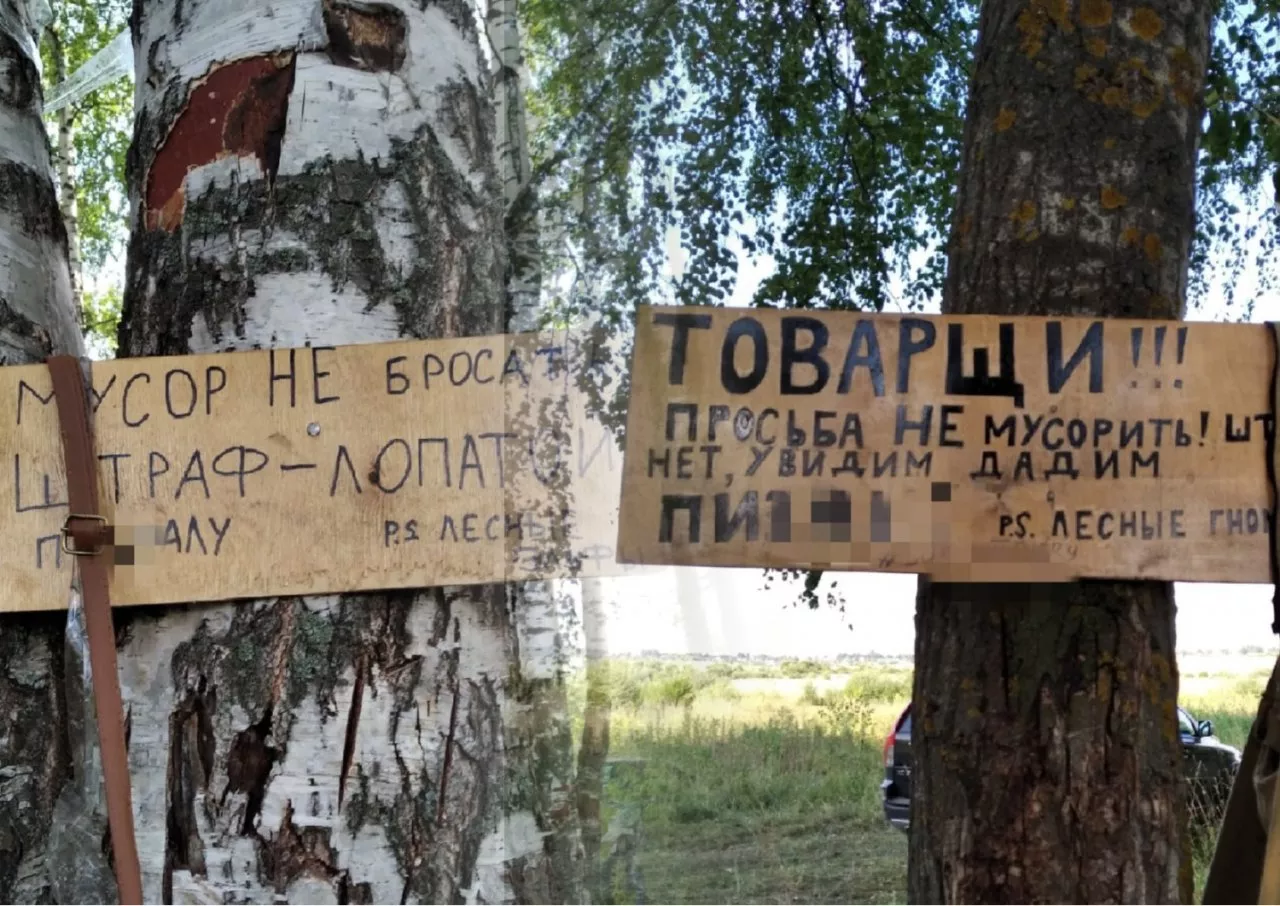 МУСОР НЕ БРОСАТ
ШТРАФ-ЛОПАТОЙ
П АЛУ P.S ЛЕСНЫЕ
ТОВАРЩИ!!!
ПРОСЬБА НЕ МУСОРИТЬ! ШТ
НЕТ, УВИДИМ ДАДИМ
ПИ P.S. ЛЕСНЫЕ ГНО